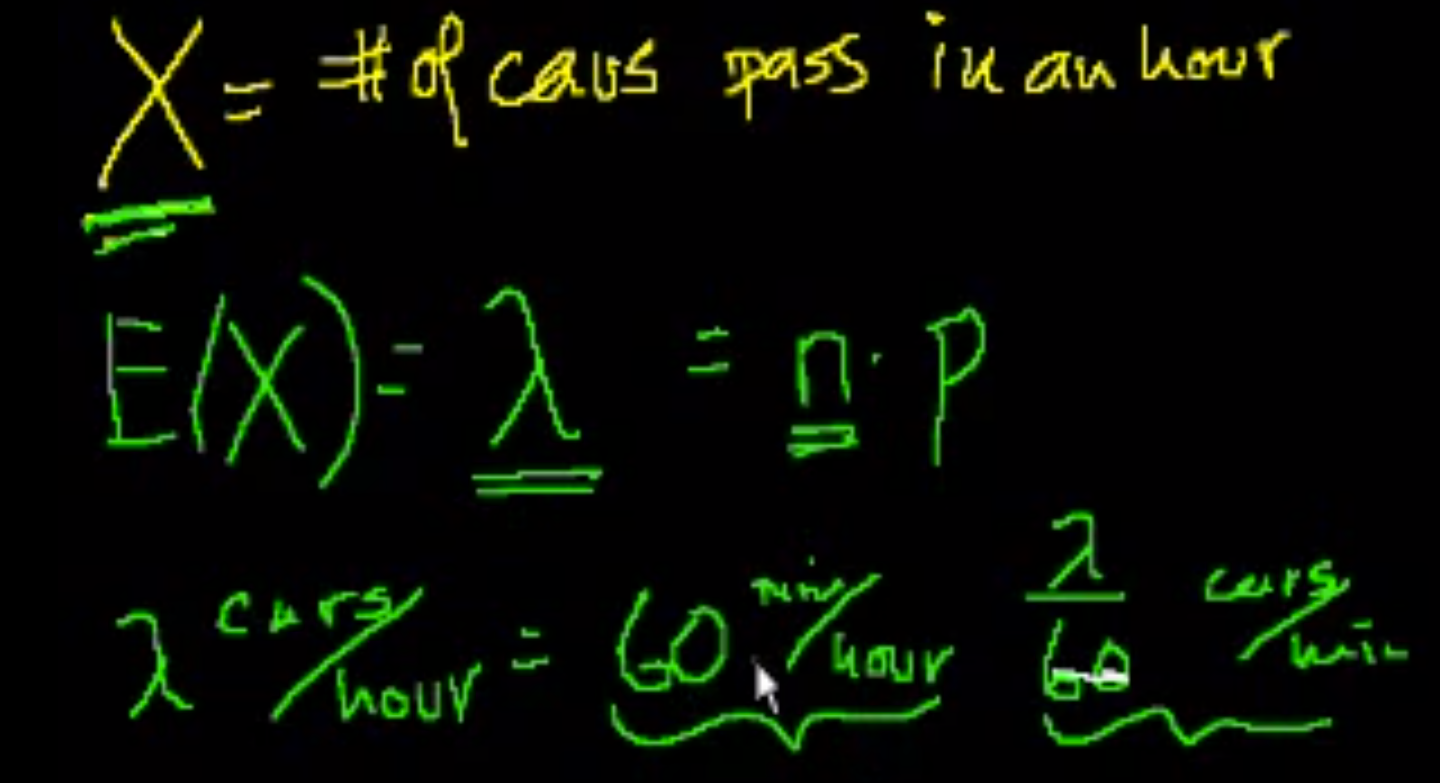 X = # of cars pass in an hour
E(X) = λ = n · p
λ cars/hour = 60 min/hour λ/60 cars/min